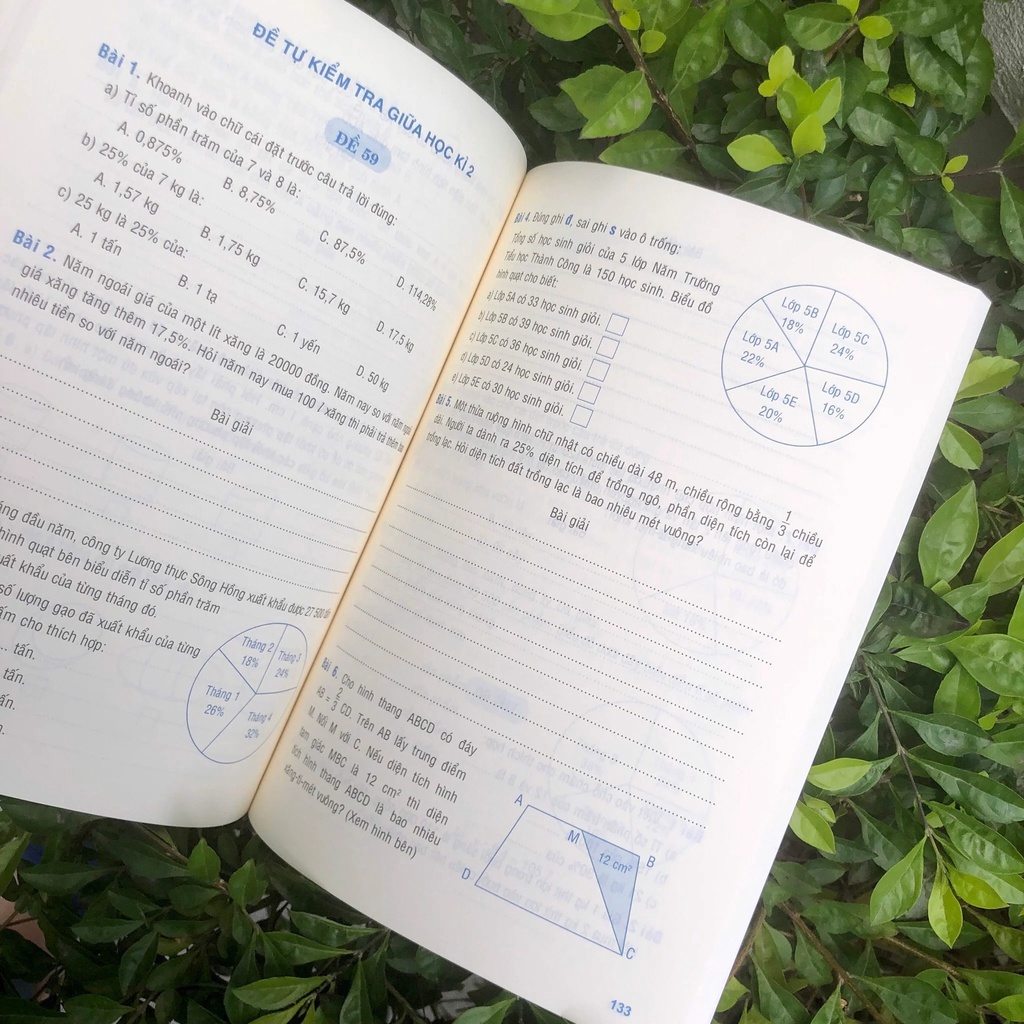 ĐỀ TỰ KIỂM TRA GIỮA HỌC KÌ 2
ĐỀ 59
Bài 1. Khoanh vào chữ cái đặt trước câu trả lời đúng:
a) Tỉ số phần trăm của 7 và 8 là:
A. 0,875% B. 8,75% C. 87,5% D. 114,28%
b) 25% của 7 kg là:
A. 1,57 kg B. 1,75 kg C. 15,7 kg D. 17,5 kg
c) 25 kg là 25% của:
A. 1 tấn B. 1 tạ C. 1 yến D. 50 kg
Bài 2. Năm ngoái giá của một lít xăng là 20000 đồng. Năm nay so với năm ngoái
giá xăng tăng thêm 17,5%. Hỏi năm nay mua 100 l xăng thì phải trả thêm bao
nhiêu tiền so với năm ngoái?
Bài giải
đầu năm, công ty Lương thực Sông Hồng xuất khẩu được 27 500
hình quạt bên biểu diễn tỉ số phần trăm
khẩu của từng tháng đó.
số lượng gạo đã xuất khẩu của từng
cho thích hợp:
tấn.
tấn.
Tháng 2
18%
Tháng 3
24%
Tháng 1
26%
Tháng 4
32%
Bài 4. Đúng ghi đ, sai ghi s vào ô trống:
Tổng số học sinh giỏi của 5 lớp Năm Trường
Tiểu học Thành Công là 150 học sinh. Biểu đồ
hình quạt cho biết:
a) Lớp 5A có 33 học sinh giỏi.
b) Lớp 5B có 39 học sinh giỏi.
c) Lớp 5C có 36 học sinh giỏi.
d) Lớp 5D có 24 học sinh giỏi.
e) Lớp 5E có 30 học sinh giỏi.
Lớp 5B
18%
Lớp 5C
24%
Lớp 5A
22%
Lớp 5D
16%
Lớp 5E
20%
Bài 5. Một thửa ruộng hình chữ nhật có chiều dài 48 m, chiều rộng bằng 1/3 chiều
dài. Người ta dành ra 25% diện tích để trồng ngô, phần diện tích còn lại để
trồng lạc. Hỏi diện tích đất trồng lạc là bao nhiêu mét vuông?
Bài giải
Bài 6. Cho hình thang ABCD có đáy
AB = 2/3 CD. Trên AB lấy trung điểm
M. Nối M với C. Nếu diện tích hình
tam giác MBC là 12 cm² thì diện
tích hình thang ABCD là bao nhiêu
xăng-ti-mét vuông? (Xem hình bên)
A
M
B
12 cm²
D
C
133